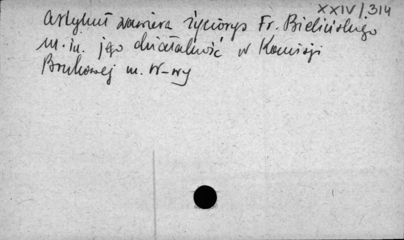 XXIV/314
Artykuł zawiera życiorys Fr. Bielińskiego
m.in. jego działalność w Komisji
Brukowej m. W-wy